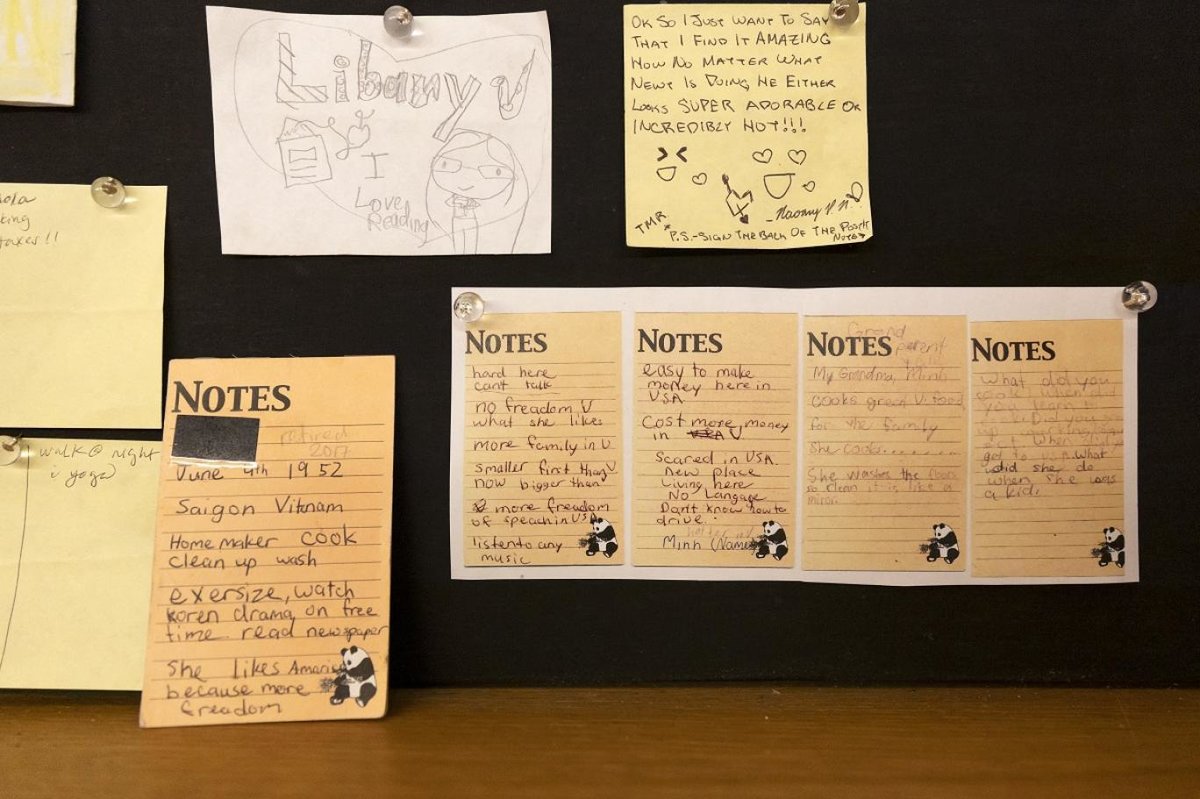 Libarry
I
Love
Reading
OK SO I JUST WANT TO SAY
THAT I FIND IT AMAZING
HOW NO MATTER WHAT
NEWT IS DOING HE EITHER
LOOKS SUPER ADORABLE OR
INCREDIBLY HOT!!!
TMR
P.S.-SIGN THE BACK OF THE
NOTE
king
taxes!!
walk @ night
yoga
NOTES
retired
2017
June 4th 1952
Saigon Vitnam
Home maker cook
clean up wash
exersize, watch
koren drama on free
time read newspaper
She likes
because more
freadom
NOTES
hard here
cant talk
no freadom V
what she likes
more family in V
smaller first than V
now bigger than
more freudom
of speach in USA
listen to any
music
NOTES
easy to make
money here in
USA
Cost more money
in V
Scared in USA
New place
Living here
No Langage
Don't know how to
drive.
Minh (Name)
NOTES
Grand
parent
My Grandma, Minh
cooks great V. food
for the family
She cooks
She washes the floors
so clean it is like a
mirror.
NOTES
What did you
when
you
Did you
When
got to USA What
did she do
when she was
a kid.